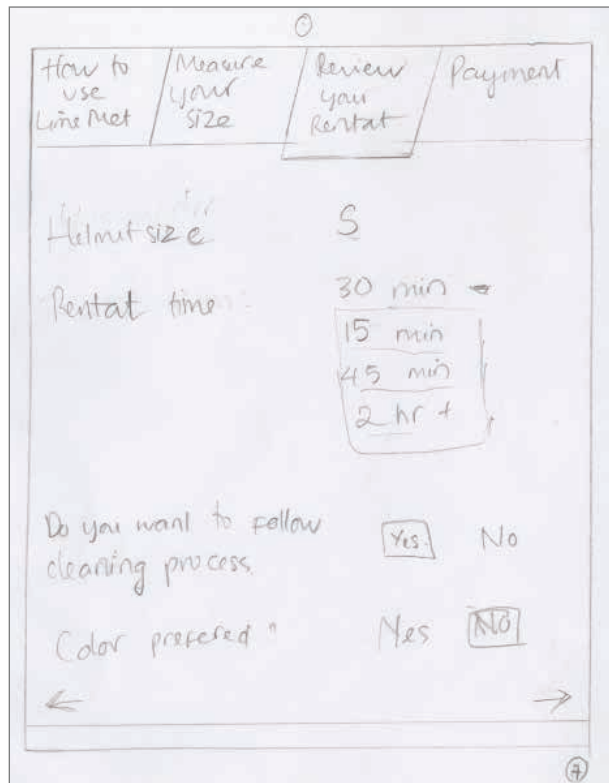 How to
use
LimeMet
Measure
your
size
Review
your
Rental
Payment
Helmet size S
Rental time 30 min
15 min
45 min
2 hr +
Do you want to follow
cleaning process.
Yes. No
Color prefered " Yes NO
7